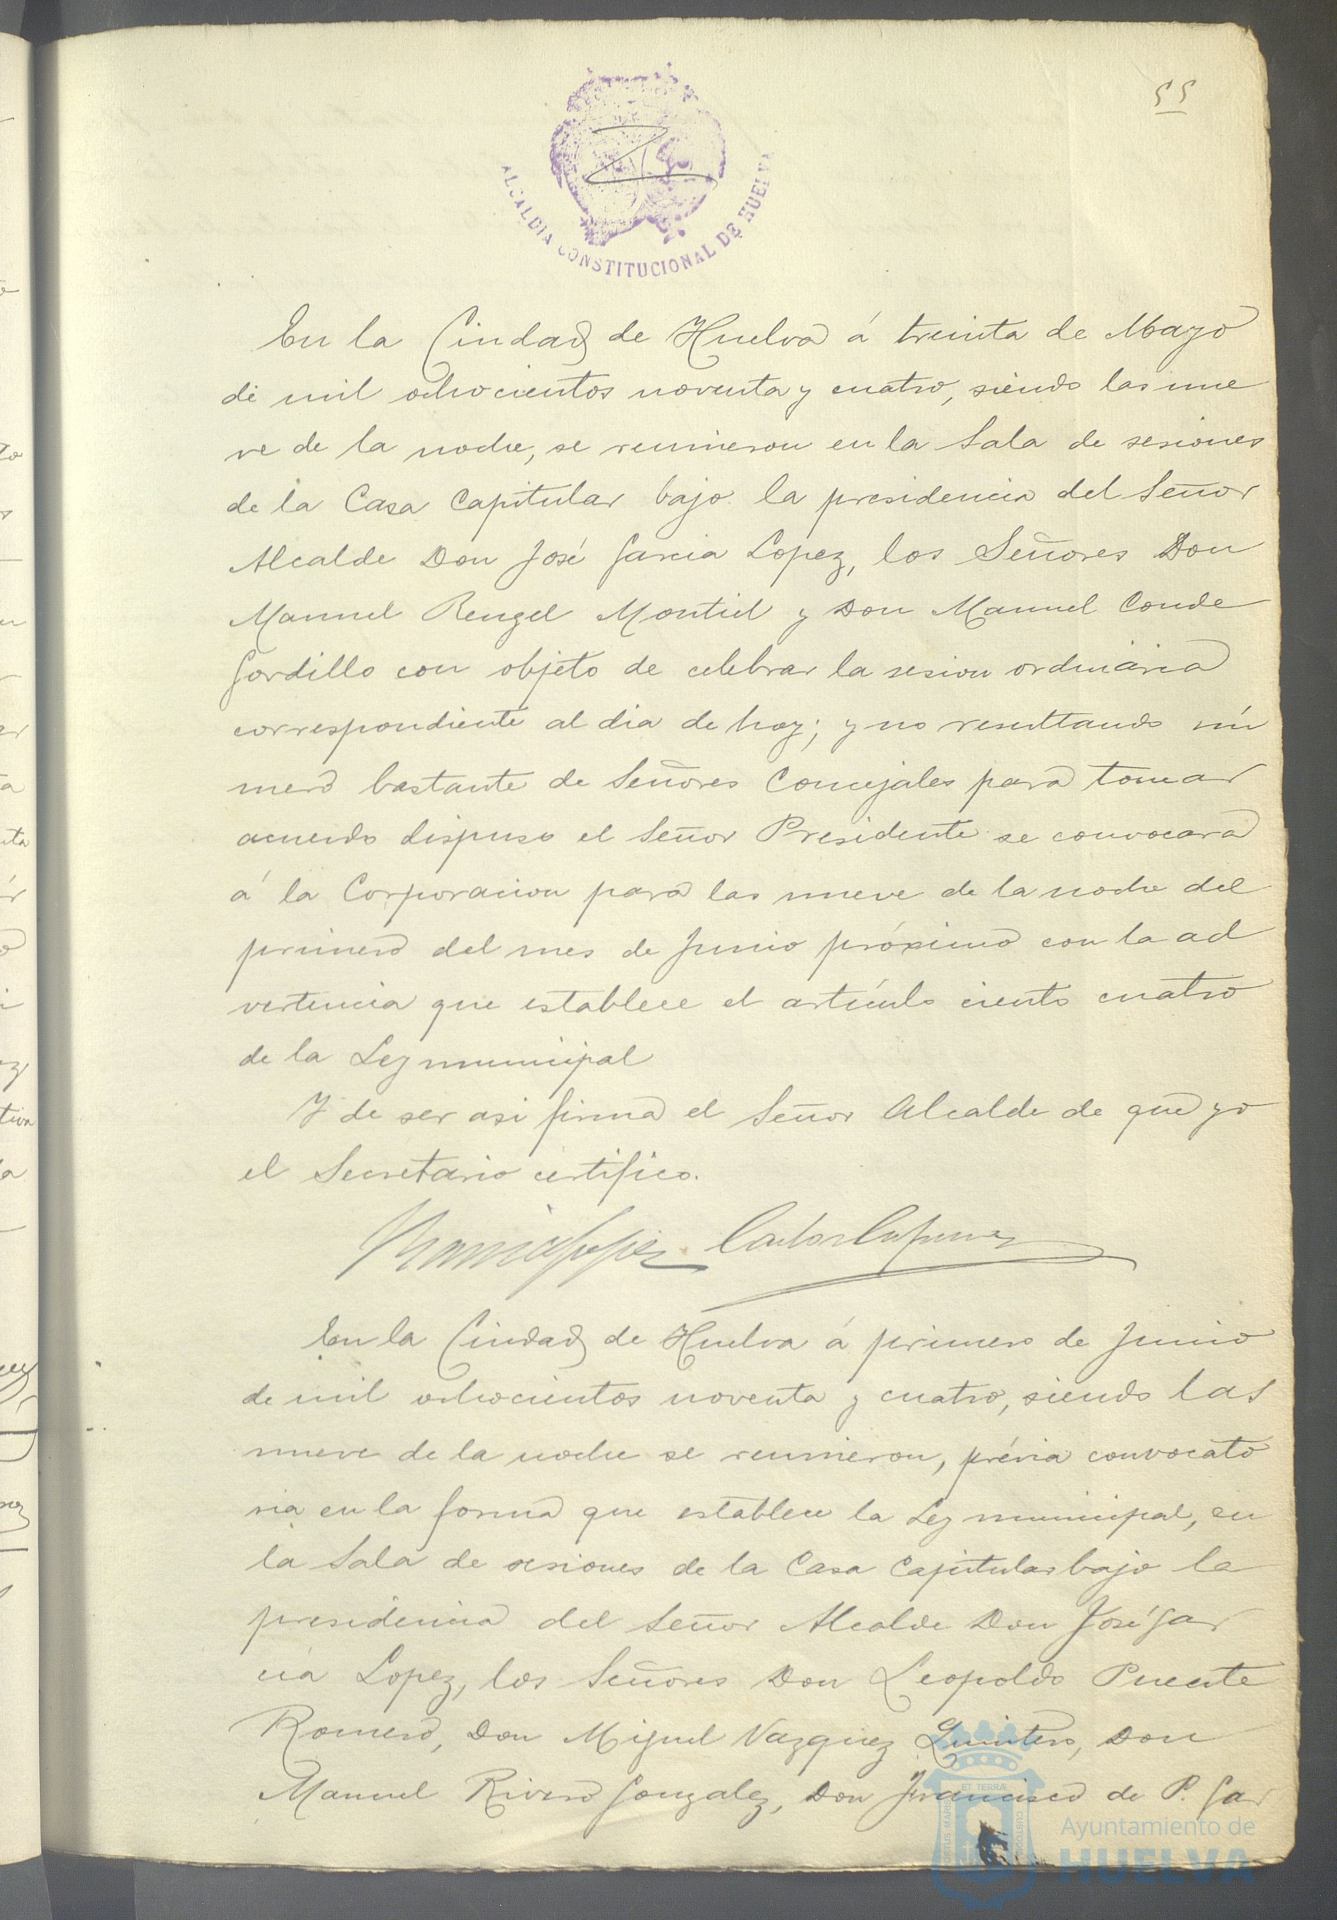 55
ALCALDIA CONSTITUCIONAL DE HUELVA
En la Ciudad de Huelva á treinta de Mayo
de mil ochocientos noventa y cuatro, siendo las nue
ve de la noche, se reunieron en la Sala de sesiones
de la Casa Capitular bajo la presidencia del Señor
Alcalde Don José Garcia Lopez, los Señores Don
Manuel Rengel Montiel y Don Manuel Conde
Gordillo con objeto de celebrar la sesion ordinaria
correspondiente al dia de hoy; y no resultando nú
mero bastante de Señores Concejales para tomar
acuerdo dispuso el Señor Presidente se convocara
á la Corporacion para las nueve de la noche del
primero del mes de Junio próximo con la ad
vertencia que establece el artículo ciento cuatro
de la Ley municipal
Y de ser asi firma el Señor Alcalde de que yo
el Secretario certifico.
En la Ciudad de Huelva á primero de Junio
de mil ochocientos noventa y cuatro, siendo las
nueve de la noche se reunieron, prévia convocato
ria en la forma que establece la Ley municipal, en
la Sala de sesiones de la Casa Capitular bajo la
presidencia del Señor Alcalde Don José Gar
cia Lopez, los Señores Don Leopoldo Puente
Romero, Don Miguel Vazquez Quintero, Don
Manuel Rivero Gonzalez, Don Francisco de P. Gar
Ayuntamiento de
HUELVA